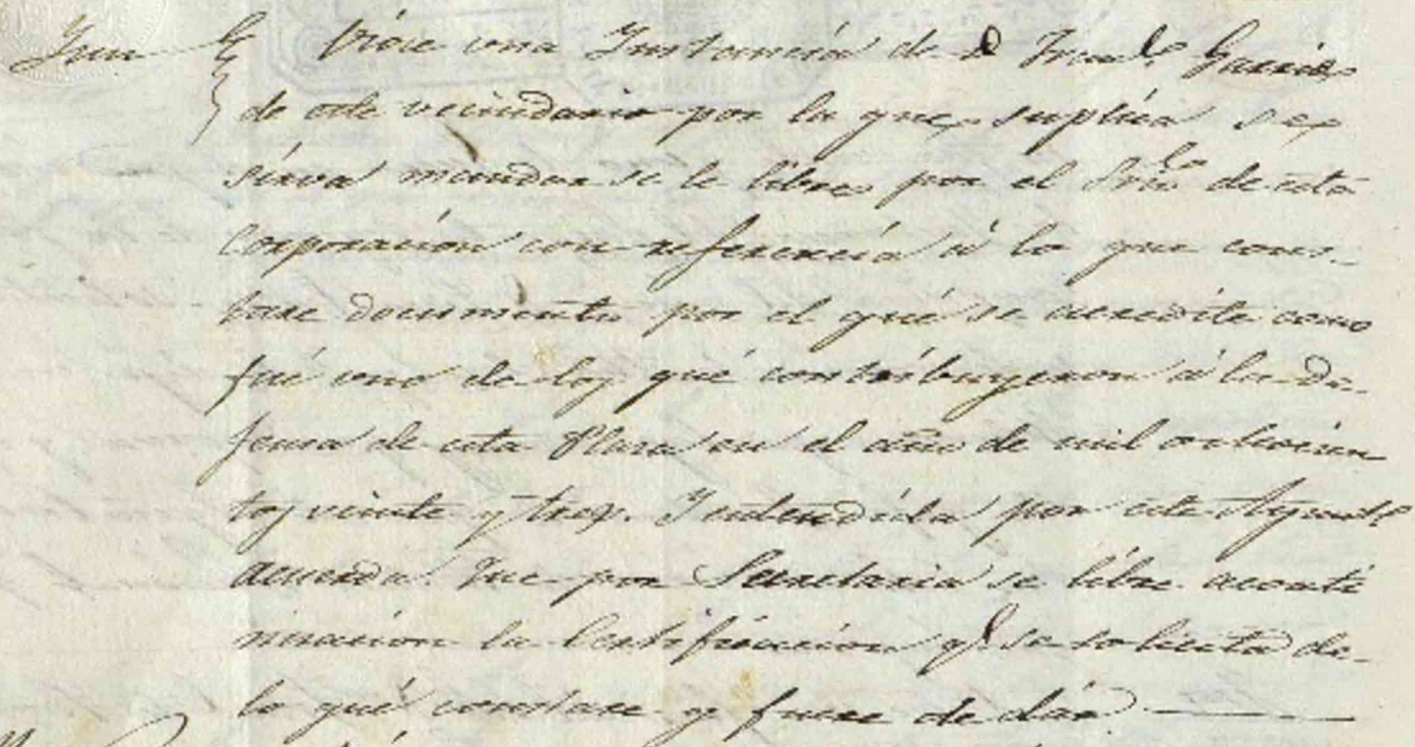 Vióse una Instancia de D Fran.co Garcia
de este vecindario por la que suplica se
sirva mandar se le libre por el Srio. de esta
corporacion con referencia á lo que cons-
tare documento por el qué se acredite como
fué uno de los qué contribuyeron á la de-
fensa de esta Plaza en el año de mil ochocien
tos veinte y tres. Y entendida por este Ayunt.o
acuerda: Que por Secretaria se libre aconti
nuacion la Certificacion q.e se solicita de
lo qué constare y fuere de dár